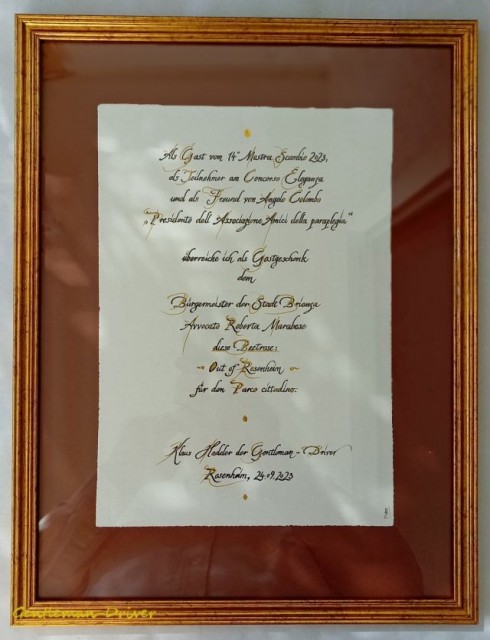 Als Gast vom 14° Mostra Scordio 2023,
als Teilnehmer am Concorso Eleganza
und als Freund von Angelo Colombo
„Presidente dell Associazione Amici della paraplegia“
überreiche ich als Gastgeschenk
dem
Bürgermeister der Stadt Brianza
Avvocato Roberta
diese Beetrose:
~ Out of Rosenheim ~
für den Parco cittadino.
Klaus Hedder der Gentleman-Driver
Rosenheim, 24.09.2023
Gentleman-Driver